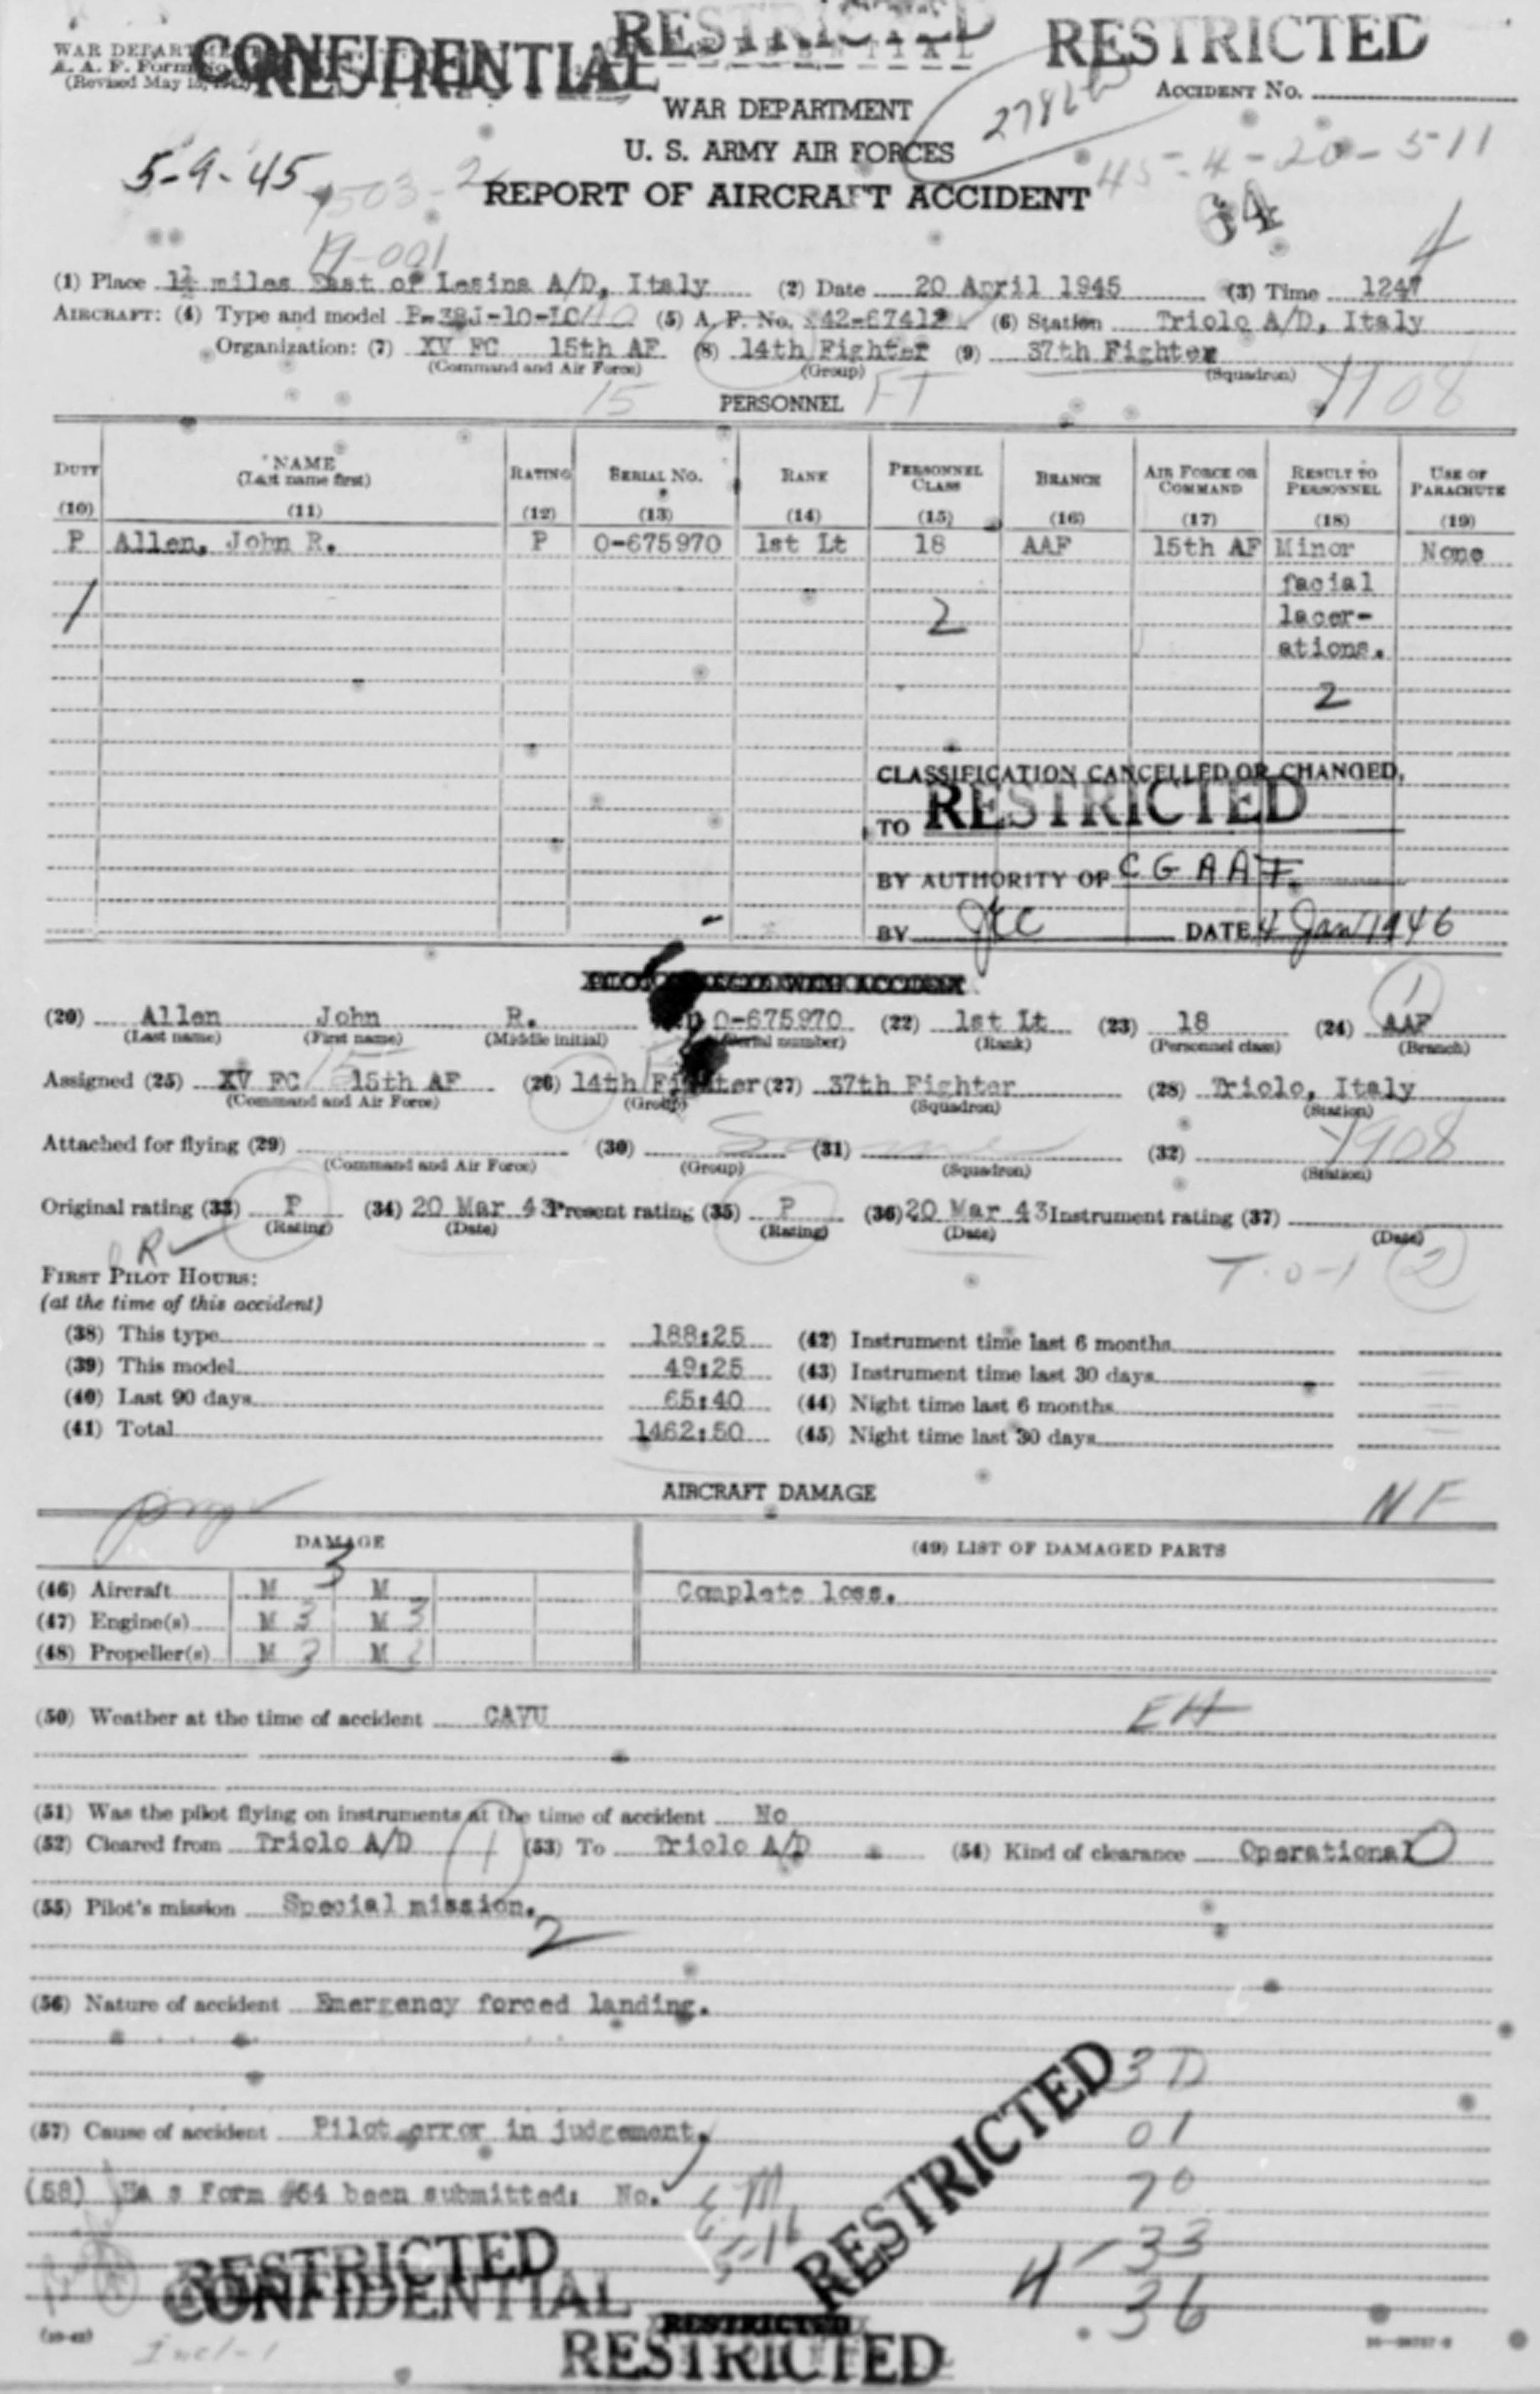 WAR DEPARTMENT
A. A. F. Form No.
(Revised May 15, 1942)
CONFIDENTIAL
RESTRICTED
RESTRICTED
RESTRICTED
ACCIDENT No.
WAR DEPARTMENT
U. S. ARMY AIR FORCES
REPORT OF AIRCRAFT ACCIDENT
5-9-45
45-4-20-511
19-001
4
(1) Place 1½ miles East of Lesina A/D, Italy (2) Date 20 April 1945 (3) Time 1247
AIRCRAFT: (4) Type and model P-38J-10-LO (5) A. F. No. 42-67412 (6) Station Triolo A/D, Italy
Organization: (7) XV FC 15th AF (8) 14th Fighter (9) 37th Fighter
(Command and Air Force) (Group) (Squadron)
15 PERSONNEL FT 7708
DUTY NAME (Last name first) RATING SERIAL NO. RANK PERSONNEL CLASS BRANCH AIR FORCE OR COMMAND RESULT TO PERSONNEL USE OF PARACHUTE
(10) (11) (12) (13) (14) (15) (16) (17) (18) (19)
P Allen, John R. P O-675970 1st Lt 18 AAF 15th AF Minor None
facial
1 2 lacer-
ations.
2
CLASSIFICATION CANCELLED OR CHANGED,
TO RESTRICTED
BY AUTHORITY OF C G A A F.
BY JCC DATE 4 Jan 1946
(20) Allen John R. O-675970 (22) 1st Lt (23) 18 (24) AAF
(Last name) (First name) (Middle initial) (Serial number) (Rank) (Personnel class) (Branch)
Assigned (25) XV FC 15th AF (26) 14th Fighter (27) 37th Fighter (28) Triolo, Italy
(Command and Air Force) (Group) (Squadron) (Station)
Attached for flying (29) (30) Same (31) (32) 7908
(Command and Air Force) (Group) (Squadron) (Station)
Original rating (33) P (34) 20 Mar 43 Present rating (35) P (36) 20 Mar 43 Instrument rating (37)
(Rating) (Date) (Rating) (Date) (Date)
R T.0-1 2
FIRST PILOT HOURS:
(at the time of this accident)
(38) This type 188:25 (42) Instrument time last 6 months
(39) This model 49:25 (43) Instrument time last 30 days
(40) Last 90 days 65:40 (44) Night time last 6 months
(41) Total 1462:50 (45) Night time last 30 days
AIRCRAFT DAMAGE
NF
DAMAGE (49) LIST OF DAMAGED PARTS
3
(46) Aircraft M M Complete loss.
(47) Engine(s) M 3 M 3
(48) Propeller(s) M 3 M 3
(50) Weather at the time of accident CAVU EH
(51) Was the pilot flying on instruments at the time of accident No
(52) Cleared from Triolo A/D 1 (53) To Triolo A/D (54) Kind of clearance Operational
(55) Pilot's mission Special mission.
2
(56) Nature of accident Emergency forced landing.
RESTRICTED
3D
(57) Cause of accident Pilot error in judgement.
01
(58) Ha s Form #54 been submitted: No.
70
5-16
4-33
36
RESTRICTED
CONFIDENTIAL
RESTRICTED
RESTRICTED
Incl-1